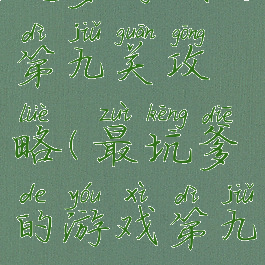 dì jiǔ guān gōng
第九关攻
lüè zuì kēng diē
略(最坑爹
de yóu xì dì jiǔ
的游戏第九